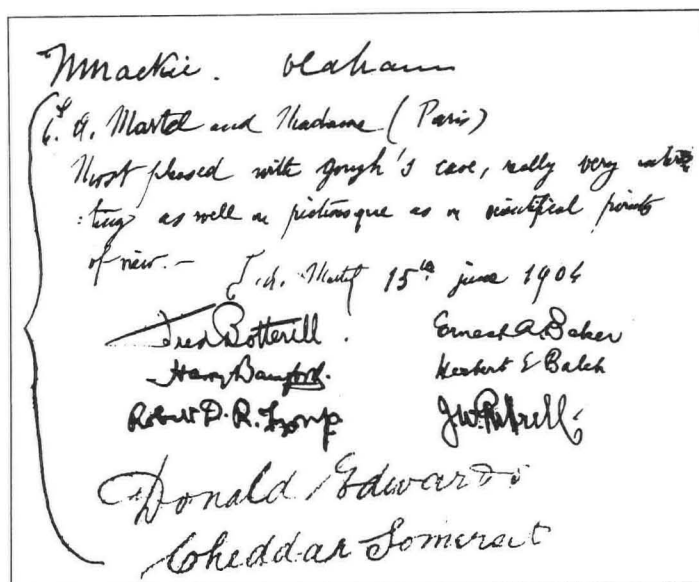 Mackie. Oldham
E. A. Martel and Madame (Paris)
Most pleased with Gough's cave, really very interes
:ting as well in picturesque as in scientifical points
of view. –
E. A. Martel 15th june 1904
Fred Botterill. Ernest A. Baker
Harry Bamford. Herbert E Balch
Robert D. R.
Donald Edwards
Cheddar Somerset